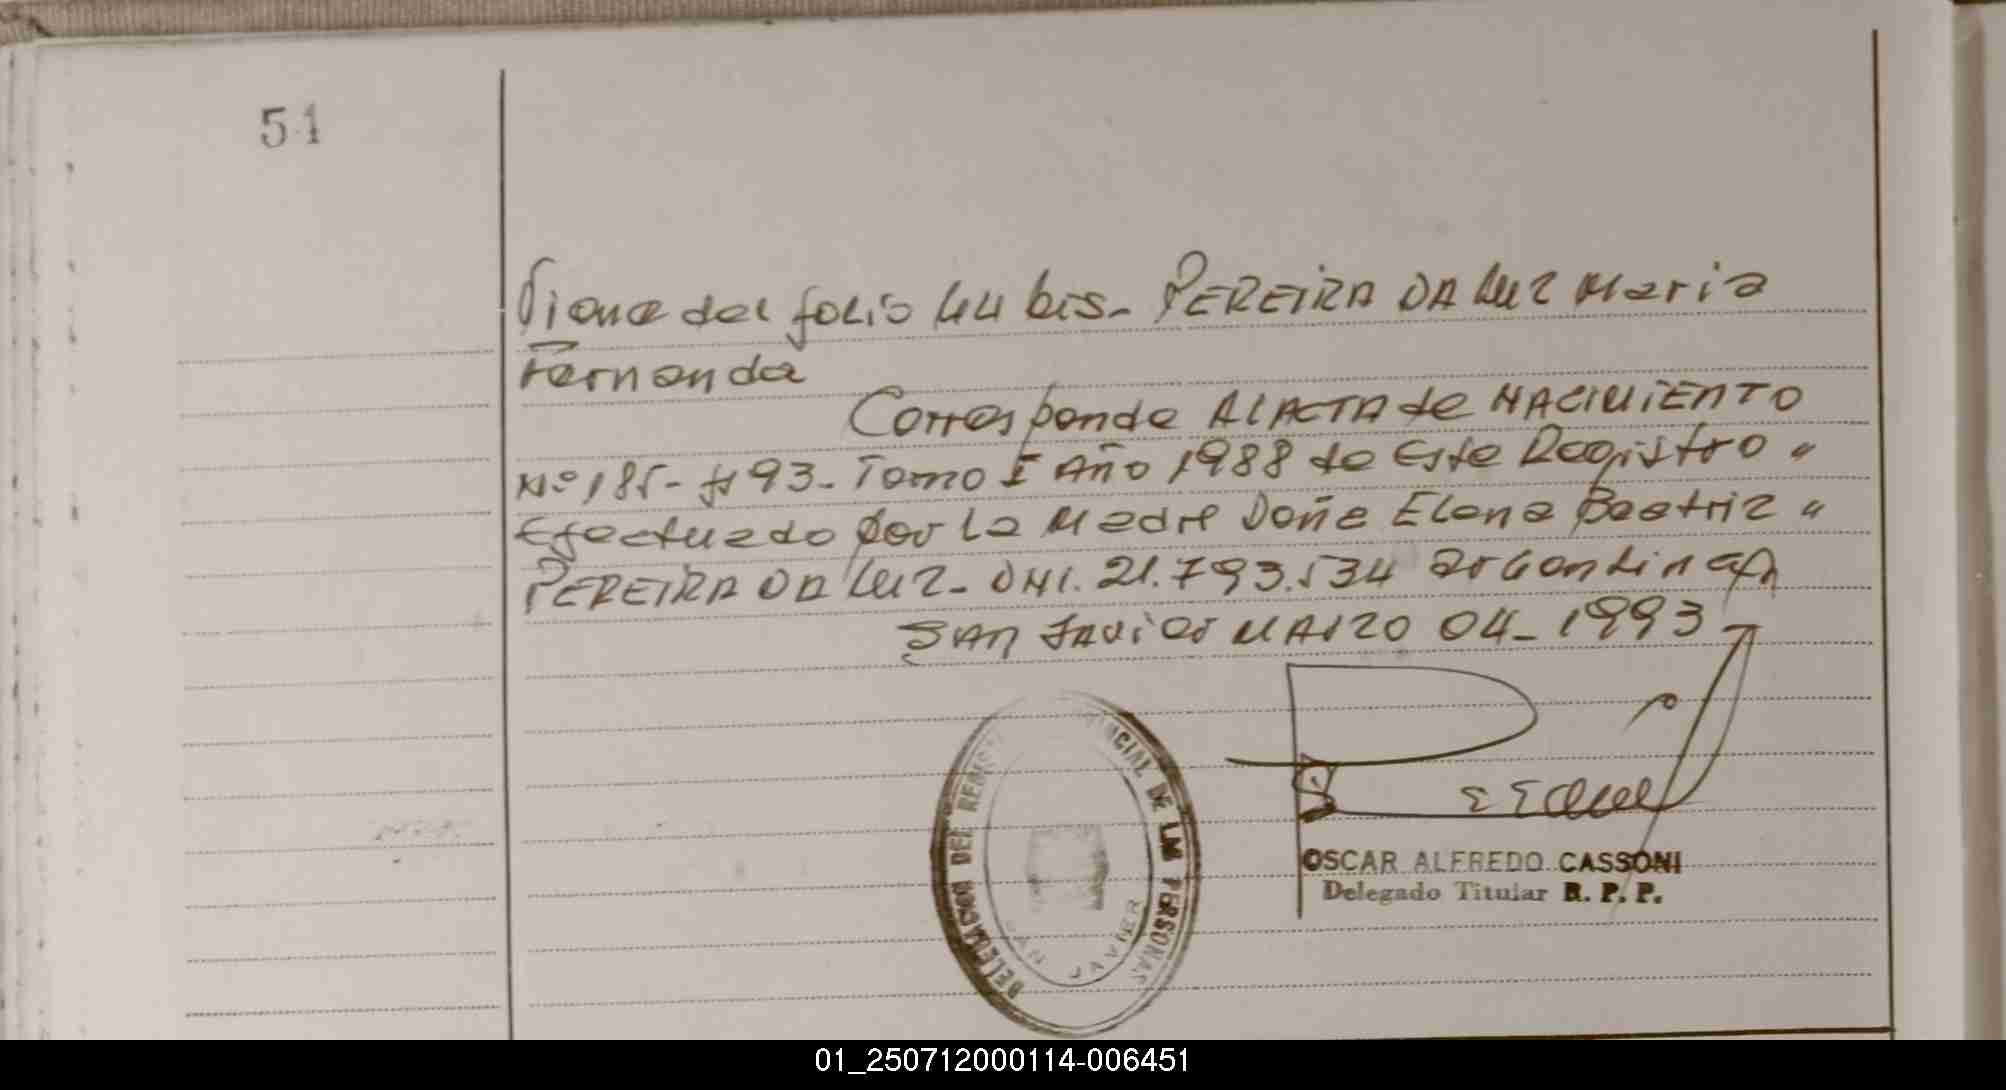 51
Viene del folio 44 bis. PEREIRA DA LUZ Maria
Fernanda
Corresponde Al ACTA de NACIMIENTO
Nº 185- fº 93- Tomo I Año 1988 de Este Registro "
Efectuado por La Madre Doña Elena Beatriz "
PEREIRA DA LUZ- DNI. 21.793.534 argentina
SAN JAVIER MARZO 04- 1993
DELEGACION DEL REGISTRO PROVINCIAL DE LAS PERSONAS
SAN JAVIER
OSCAR ALFREDO CASSONI
Delegado Titular R. P. P.
01_250712000114-006451